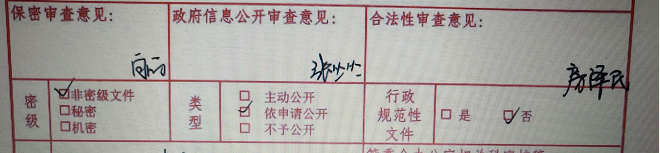 保密审查意见：
政府信息公开审查意见：
合法性审查意见：
房泽民
密级
☑非密级文件
□秘密
□机密
类型
□ 主动公开
☑ 依申请公开
□ 不予公开
行政规范性文件
□ 是 ☑ 否